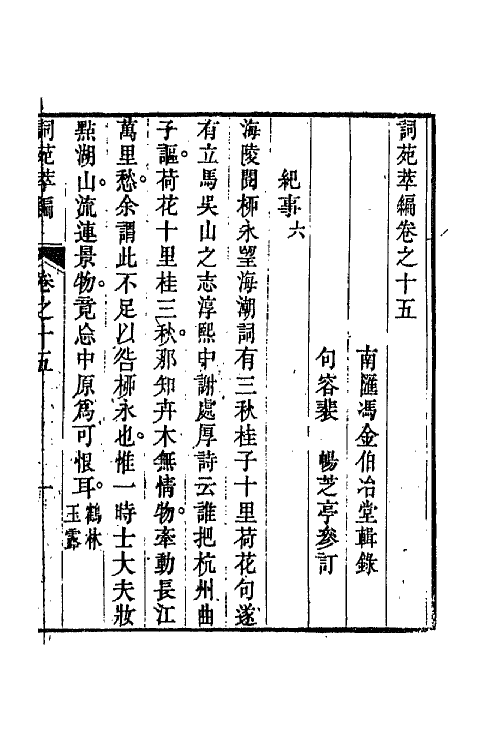 詞苑萃編卷之十五
南匯馮金伯冶堂輯錄
句容裴　暢芝亭參訂
紀事六
海陵閱柳永望海潮詞有三秋桂子十里荷花句遂
有立馬吳山之志淳熙中謝處厚詩云誰把杭州曲
子謳。荷花十里桂三秋。那知卉木無情物。牽動長江
萬里愁。余謂此不足以咎柳永也。惟一時士大夫妝
點湖山。流連景物。竟忘中原。為可恨耳。鶴林
玉露
詞苑萃編　卷之十五　一